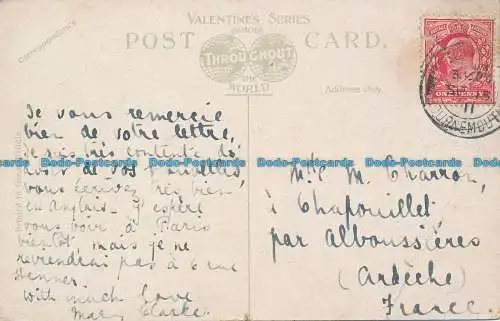 VALENTINES SERIES
FAMOUS
THROUGHOUT
THE
WORLD
POST CARD.
Correspondence
Address Only.
ONE PENNY
BOURNEMOUTH
11
Je vous remercie
bien de votre lettre,
je suis très contente
de vos nouvelles
vous écrivez très bien
en Anglais. J'espère
vous voir à Paris
bientôt mais je ne
reviendrai pas à 6 rue
With much love
Mary Clarke.
Mlle M. Charron,
à Chapouillet
par Alboussières
(Ardèche)
France.
Bodo-Postcards Bodo-Postcards Bodo-Postcards Bodo-Postcards